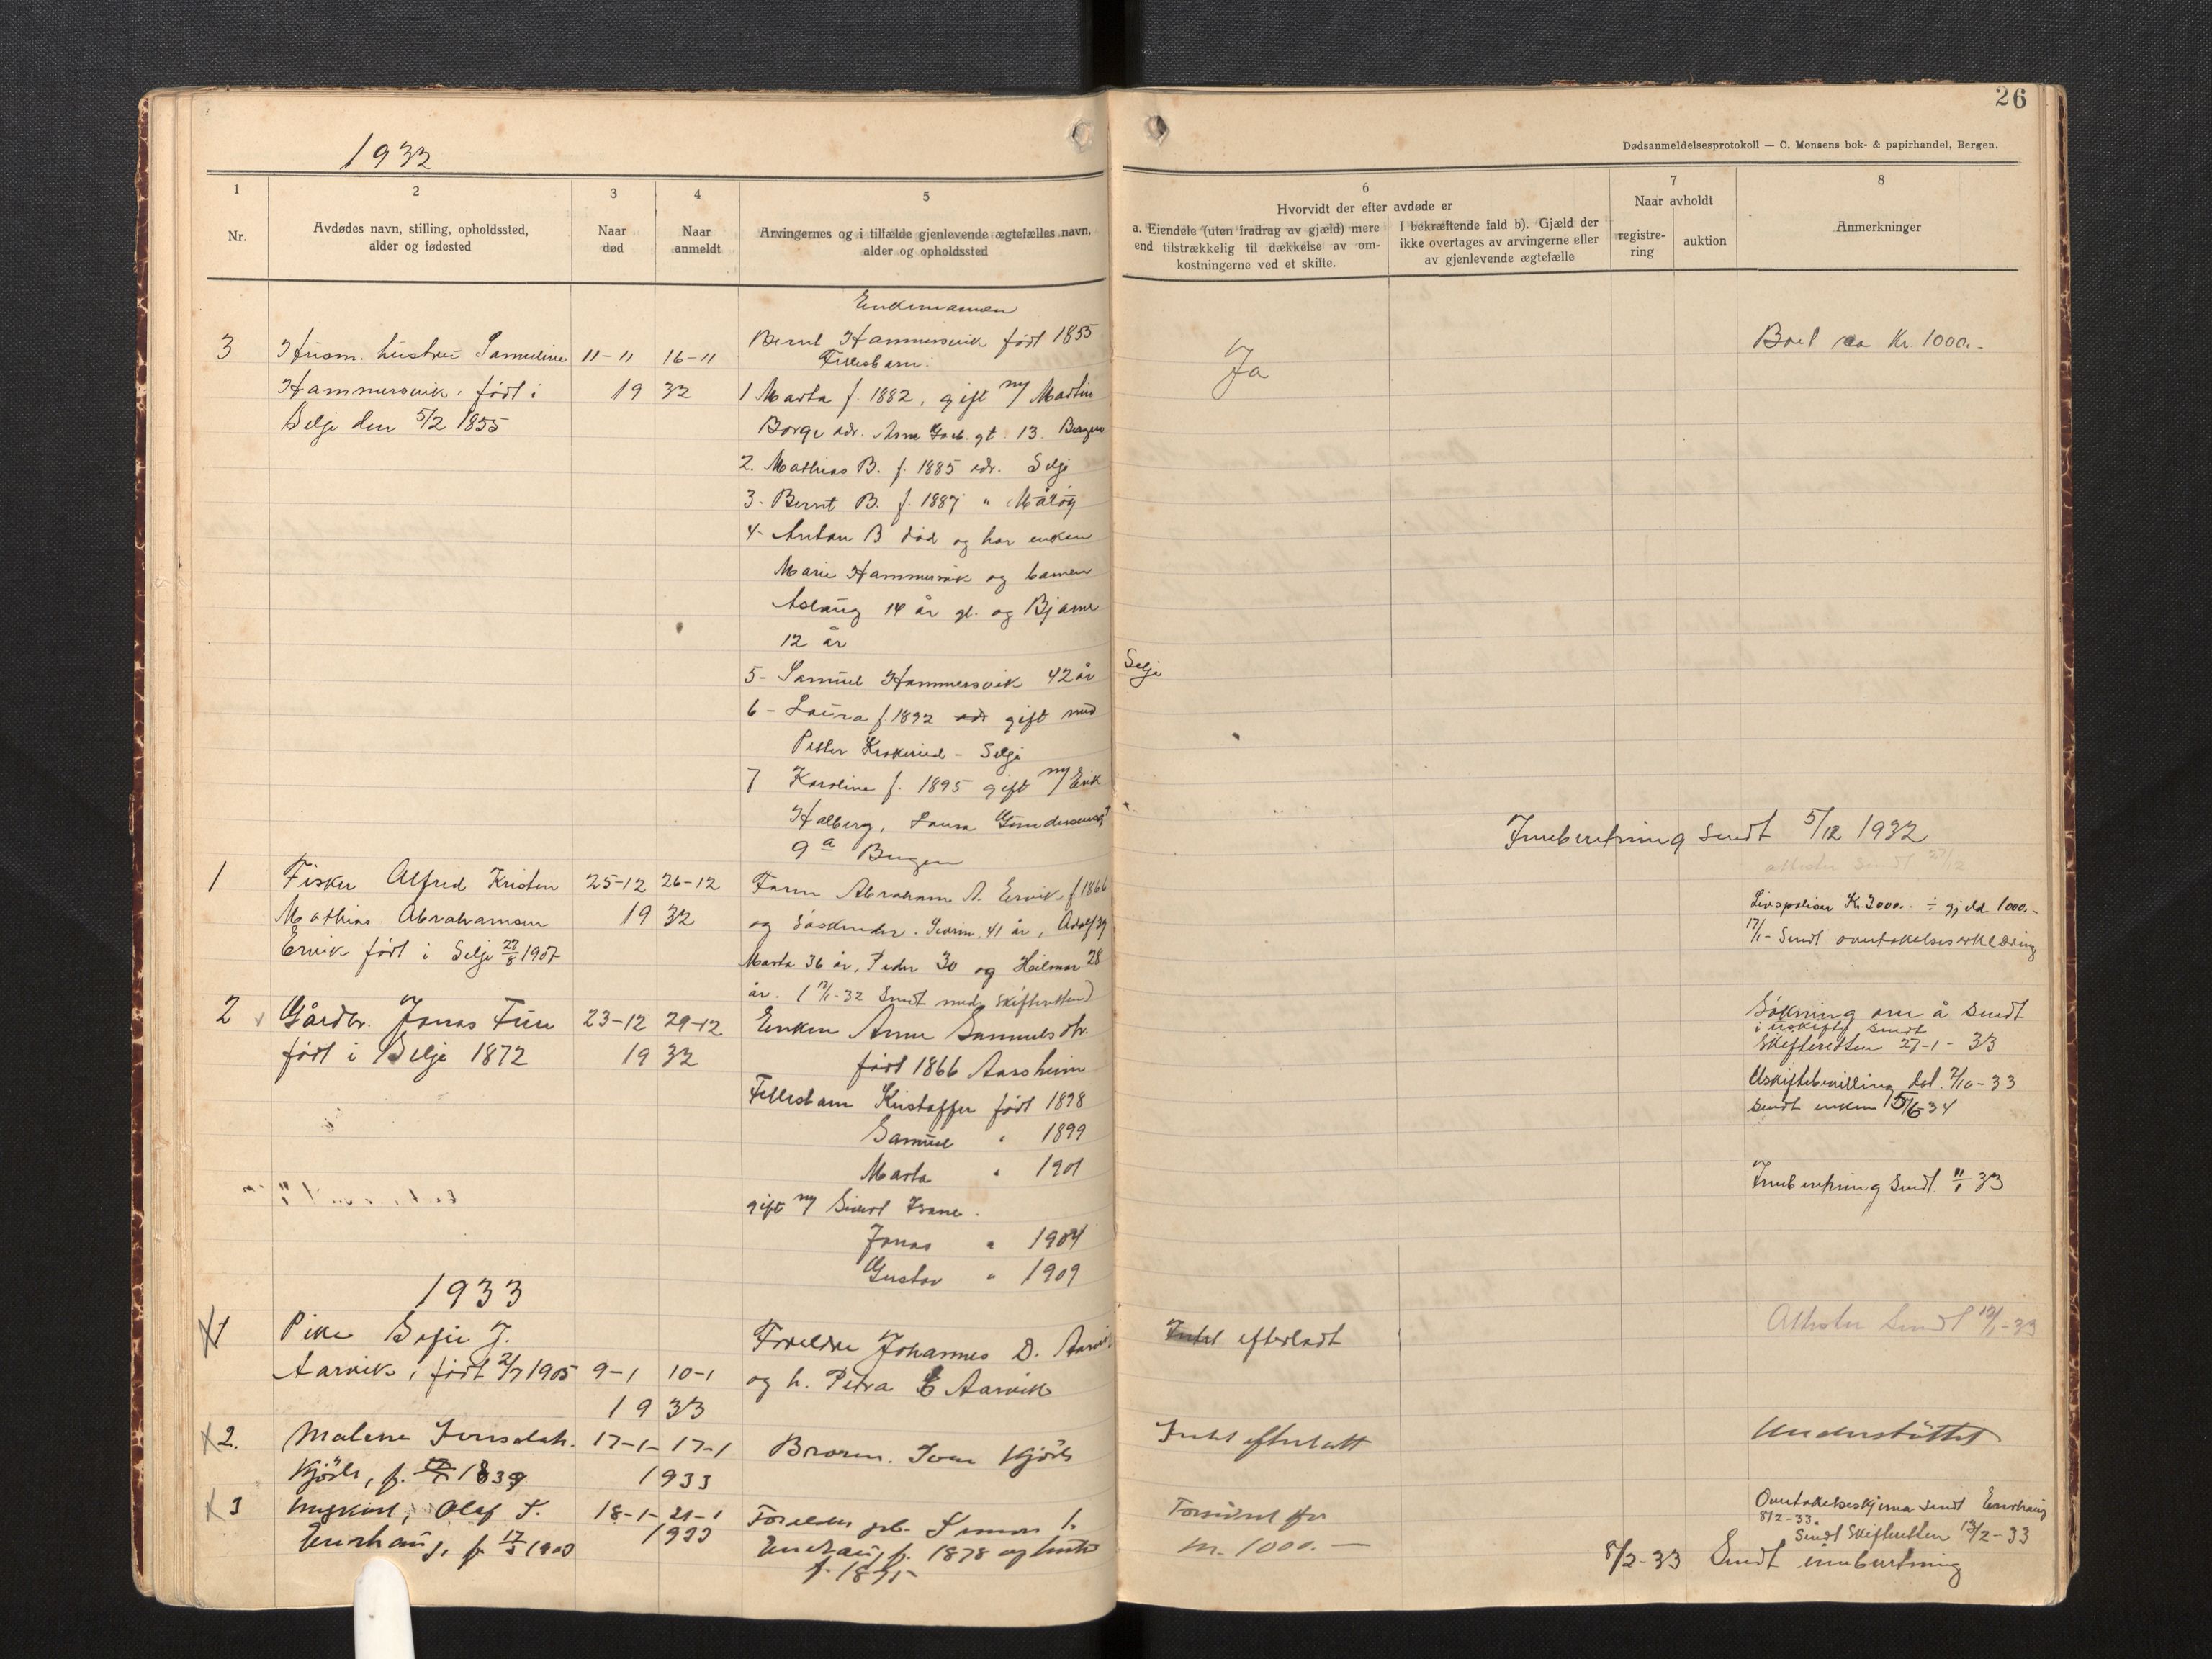 1932
26
Dødsanmeldelsesprotokoll — C. Monsens bok- & papirhandel, Bergen.
1
Nr.
2
Avdødes navn, stilling, opholdssted,
alder og fødested
3
Naar
død
4
Naar
anmeldt
5
Arvingernes og i tilfælde gjenlevende ægtefælles navn,
alder og opholdssted
6
Hvorvidt der efter avdøde er
a. Eiendele (uten fradrag av gjæld) mere
end tilstrækkelig til dækkelse av om-
kostningerne ved et skifte.
I bekræftende fald b). Gjæld der
ikke overtages av arvingerne eller
av gjenlevende ægtefælle
7
Naar avholdt
registre-
ring
auktion
8
Anmerkninger
3
Husm. hustru Samueline
Hammersvik, født i
Selje den 5/2 1855
11-11 16-11
19 32
Enkemannen
Bernt Hammersvik født 1855
Fellesbarn:
1 Marta f. 1882, gift m/ Martin
Borge adr. gt. 13. Bergen
2. Mathias B. f. 1885 adr. Selje
3- Bernt B. f. 1887 " Måløy
4- Anton B død og har enken
Marie Hammersvik og barnen
Aslaug 14 år gl. og Bjarne
12 år
5- Samuel Hammersvik 42 år Selje
6- Laura f. 1892 adr gift med
Petter - Selje
7 Karoline f. 1895 gift m/ Erik
Halberg, Laura Gundersensgt
9a Bergen
Ja
Boet ca Kr. 1000.-
Innberetning sendt 5/12 1932
attester sendt 27/12
1
Fisker Alfred Kristen
Mathias Abrahamsen
Ervik født i Selje 27/8 1907
25-12 26-12
19 32
Faren Abraham A. Ervik f 1866
og søskender. 41 år, Adolf 39
Marta 36 år, Peder 30 og Heilmar 28
år. (17/1-32 Sendt med skifteretten)
Livspoliser Kr. 3000.- ÷ gjeld 1000.-
17/1- Sendt overtakelseserklæring
2
Gårdbr. Jonas Fure
født i Selje 1872
23-12 29-12
19 32
Enken Anne Samuelsdtr.
født 1866 Aarsheim
Fellesbarn Kristoffer født 1898
Samuel " 1899
Marta " 1901
gift m/ Sivert
Jonas " 1904
Gustav " 1909
Søkning om å sendt
i uskifte sendt
Skifteretten 27-1-33
Uskiftebevilling dat. 7/10-33
sendt enken 15/6 34
Innberetning sendt 11/1 33
1933
1
Pike Sofie J.
Aarvik, født 2/7 1905
9-1 10-1
19 33
Foreldre Johannes D. Aarvik
og h. Petra Aarvik
Intet efterladt
Attester sendt 12/1-33
2.
Malene Jensdatr.
Kjøde, f. 1839
17-1- 17-1
1933
Broren. Iver Kjøde
Intet efterlatt
Understøttet
3
Ungkarl, Olaf S.
Enerhaug, f. 17/3 1900
18-1- 21-1
1933
Foreldre gbr. Simon
Enerhaug f. 1878 og hustru
f. 1875
Formuet for
kr. 1000.—
Overtakelseskjema sendt Enerhaug
8/2-33.
Sendt Skifteretten 13/2-33
8/2-33 Sendt innberetning